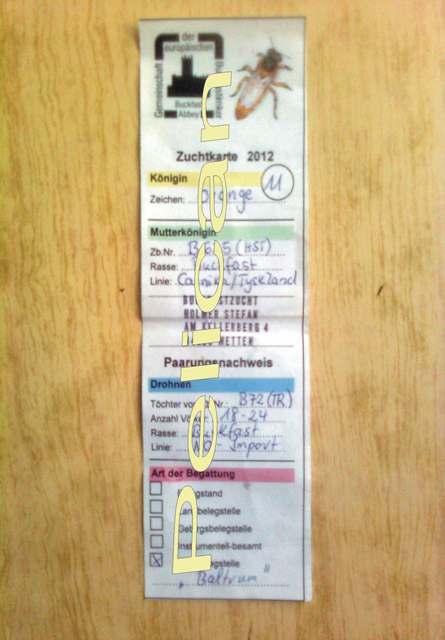 Gemeinschaft
der
europäischen
Buckfast
Abbey
Zuchtkarte 2012
Königin
11
Zeichen: Orange
Mutterkönigin
Zb.Nr. (HST)
Rasse: Buckfast
Linie: Carnika/Tyskland
HOLMER STEFAN
AM KELLERBERG 4
METTEN
Paarungsnachweis
Drohnen
Töchter von Nr. B72(TR)
Anzahl 18-24
Rasse: Buckfast
Linie: Import
Art der Begattung
Landbelegstelle
Gebirgsbelegstelle
Instrumentell-besamt
"Baltrum"
Pelican